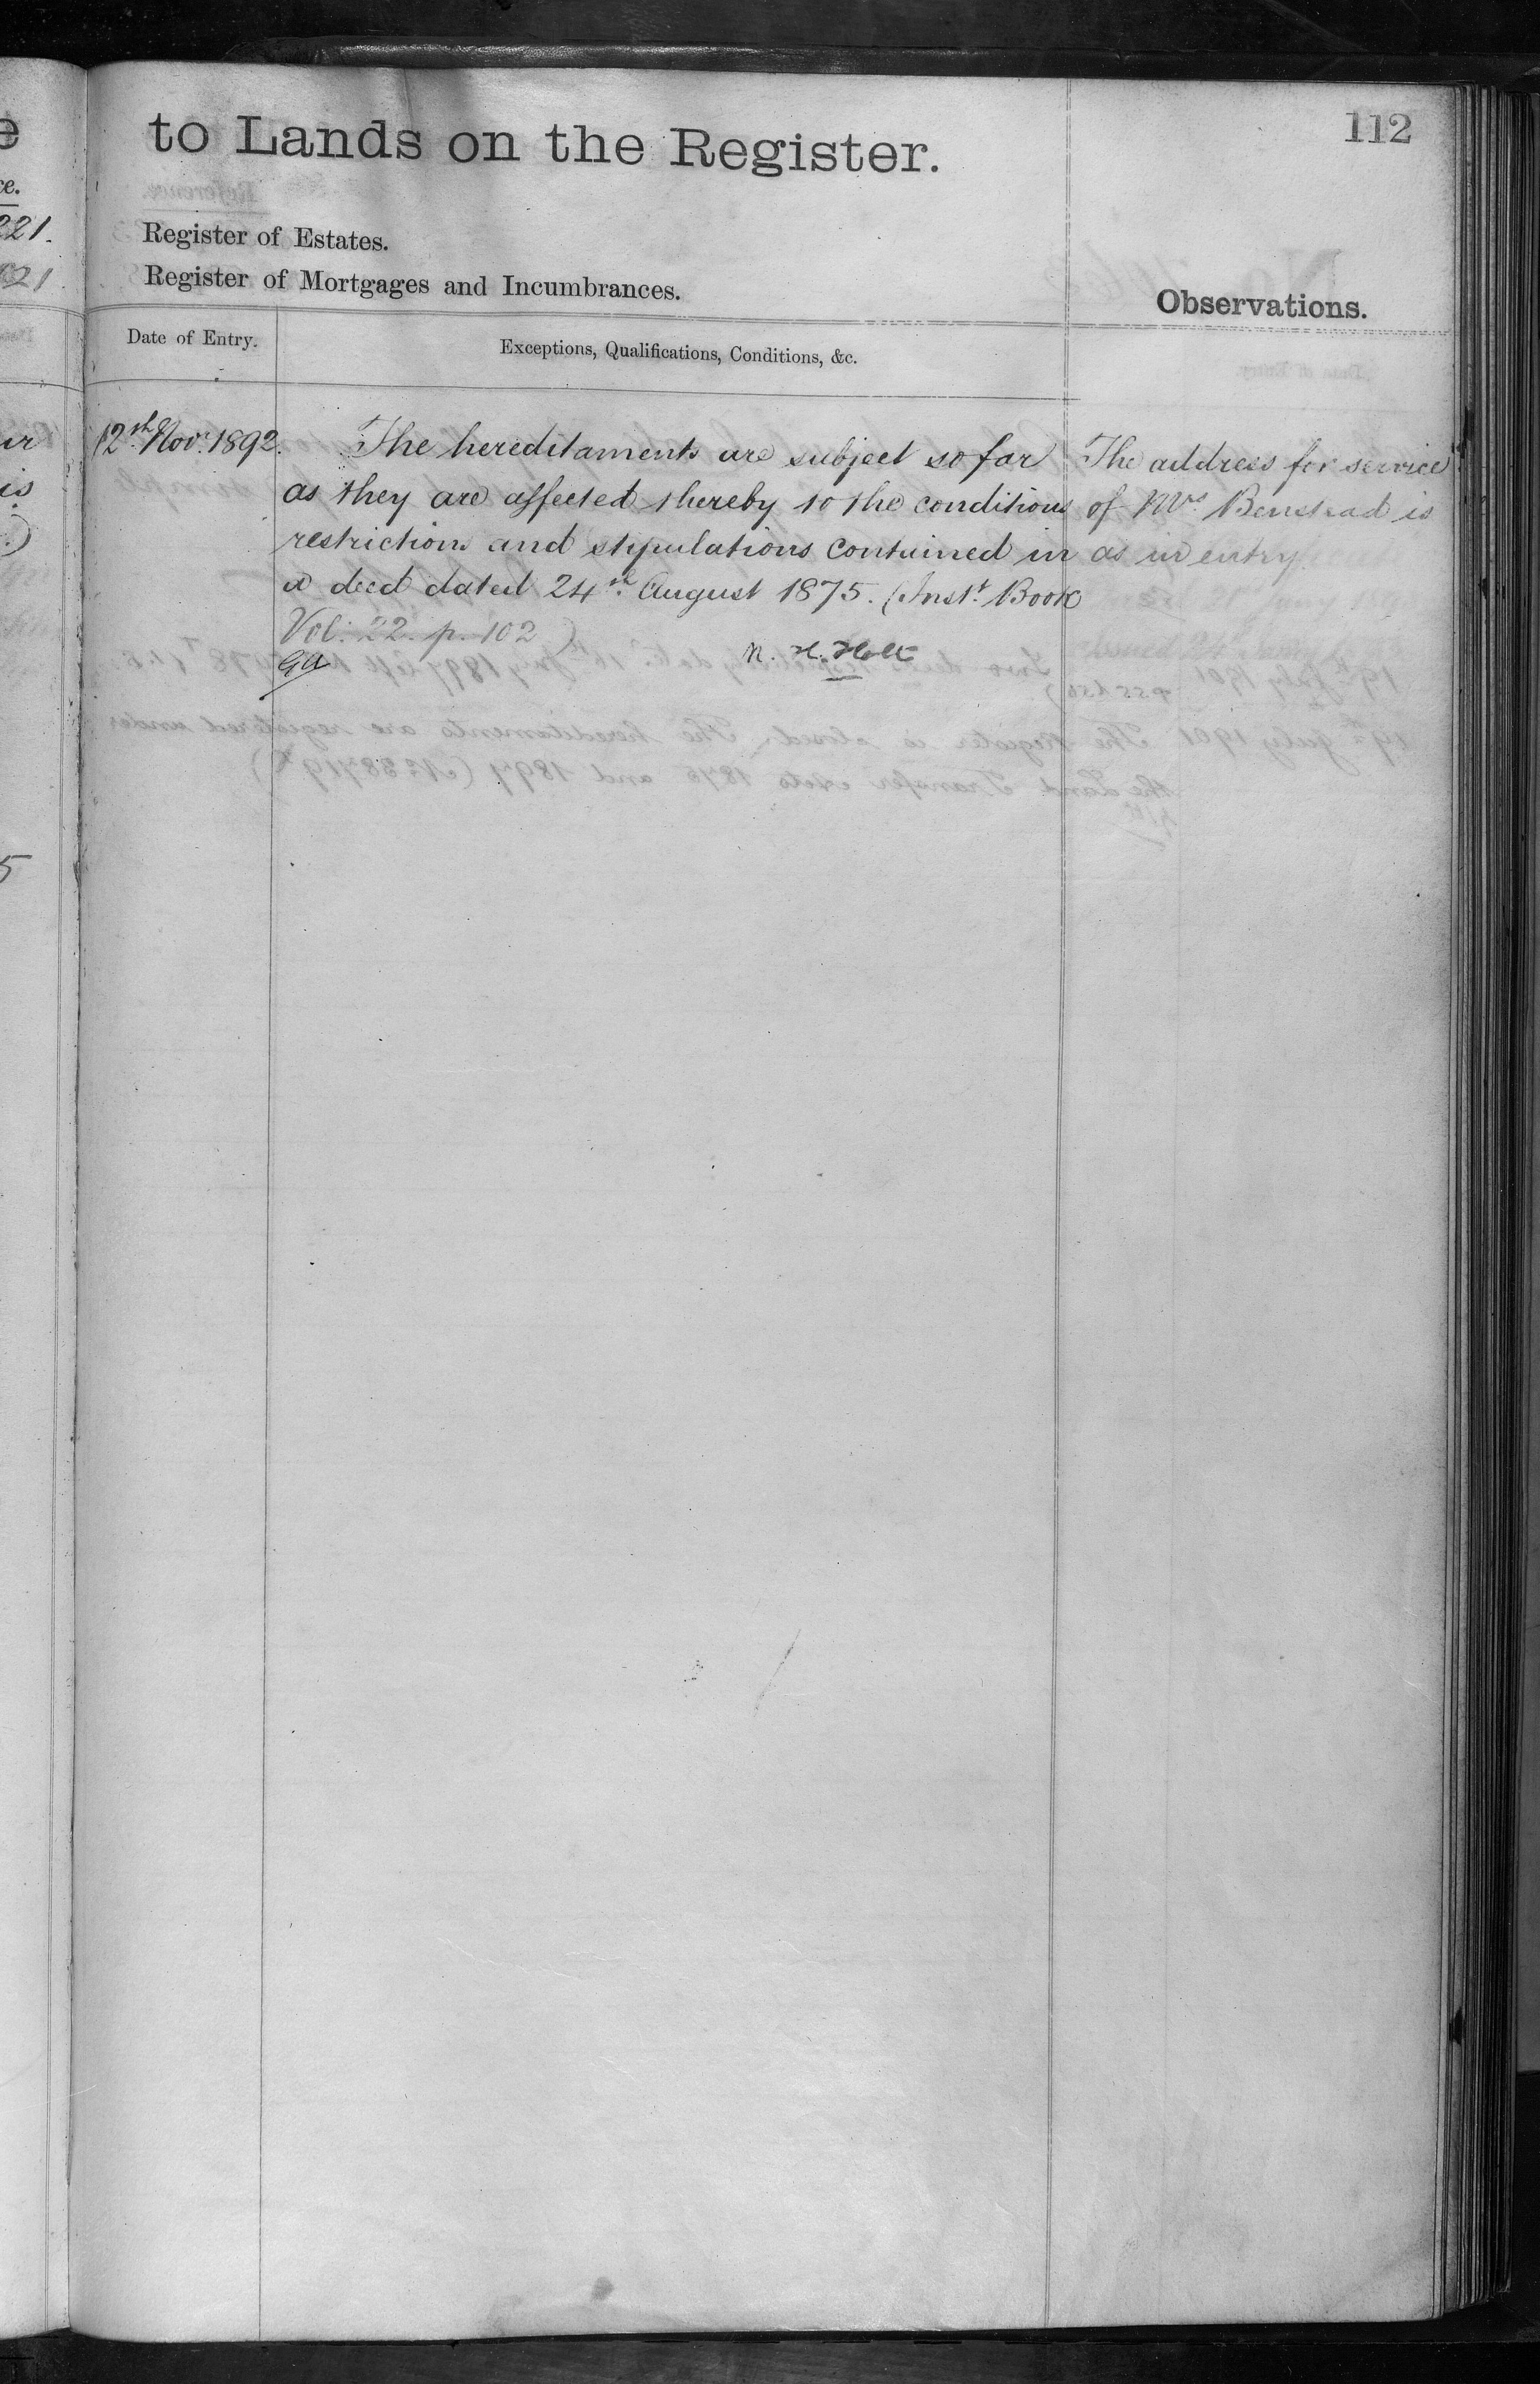 112
to Lands on the Register.
Register of Estates.
Register of Mortgages and Incumbrances.
Observations.
Date of Entry.
Exceptions, Qualifications, Conditions, &c.
12th Nov. 1892.
The hereditaments are subject so far
as they are affected thereby to the conditions
restrictions and stipulations contained in
a deed dated 24th August 1875. (Inst. Book
Vol. 22. p. 102)
N. H. Holt
The address for service
of Mrs. Benstead is
as in entry